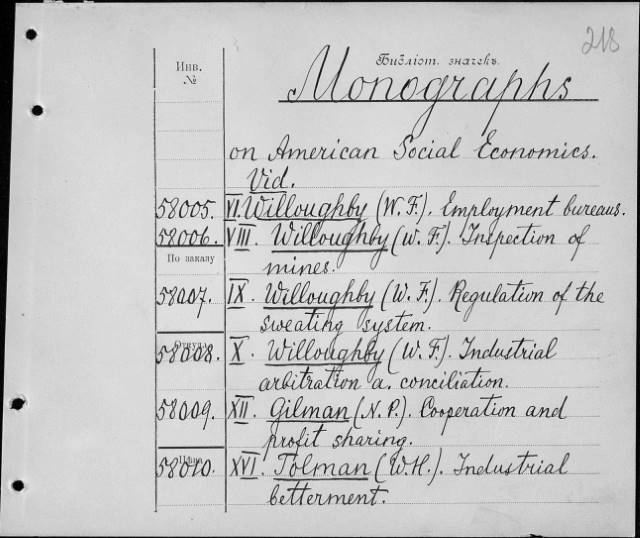 218
Инв.
№
Библіот. значекъ.
Monographs
on American Social Economics.
Vid.
58005. VI. Willoughby (W. F.). Employment bureaus.
58006. VIII. Willoughby (W. F.). Inspection of
mines.
По заказу
58007. IX. Willoughby (W. F.). Regulation of the
sweating system.
Откуда
58008. X. Willoughby (W. F.). Industrial
arbitration a. conciliation.
58009. XII. Gilman (N. P.). Cooperation and
profit sharing.
58010. XVI. Tolman (W. H.). Industrial
betterment.